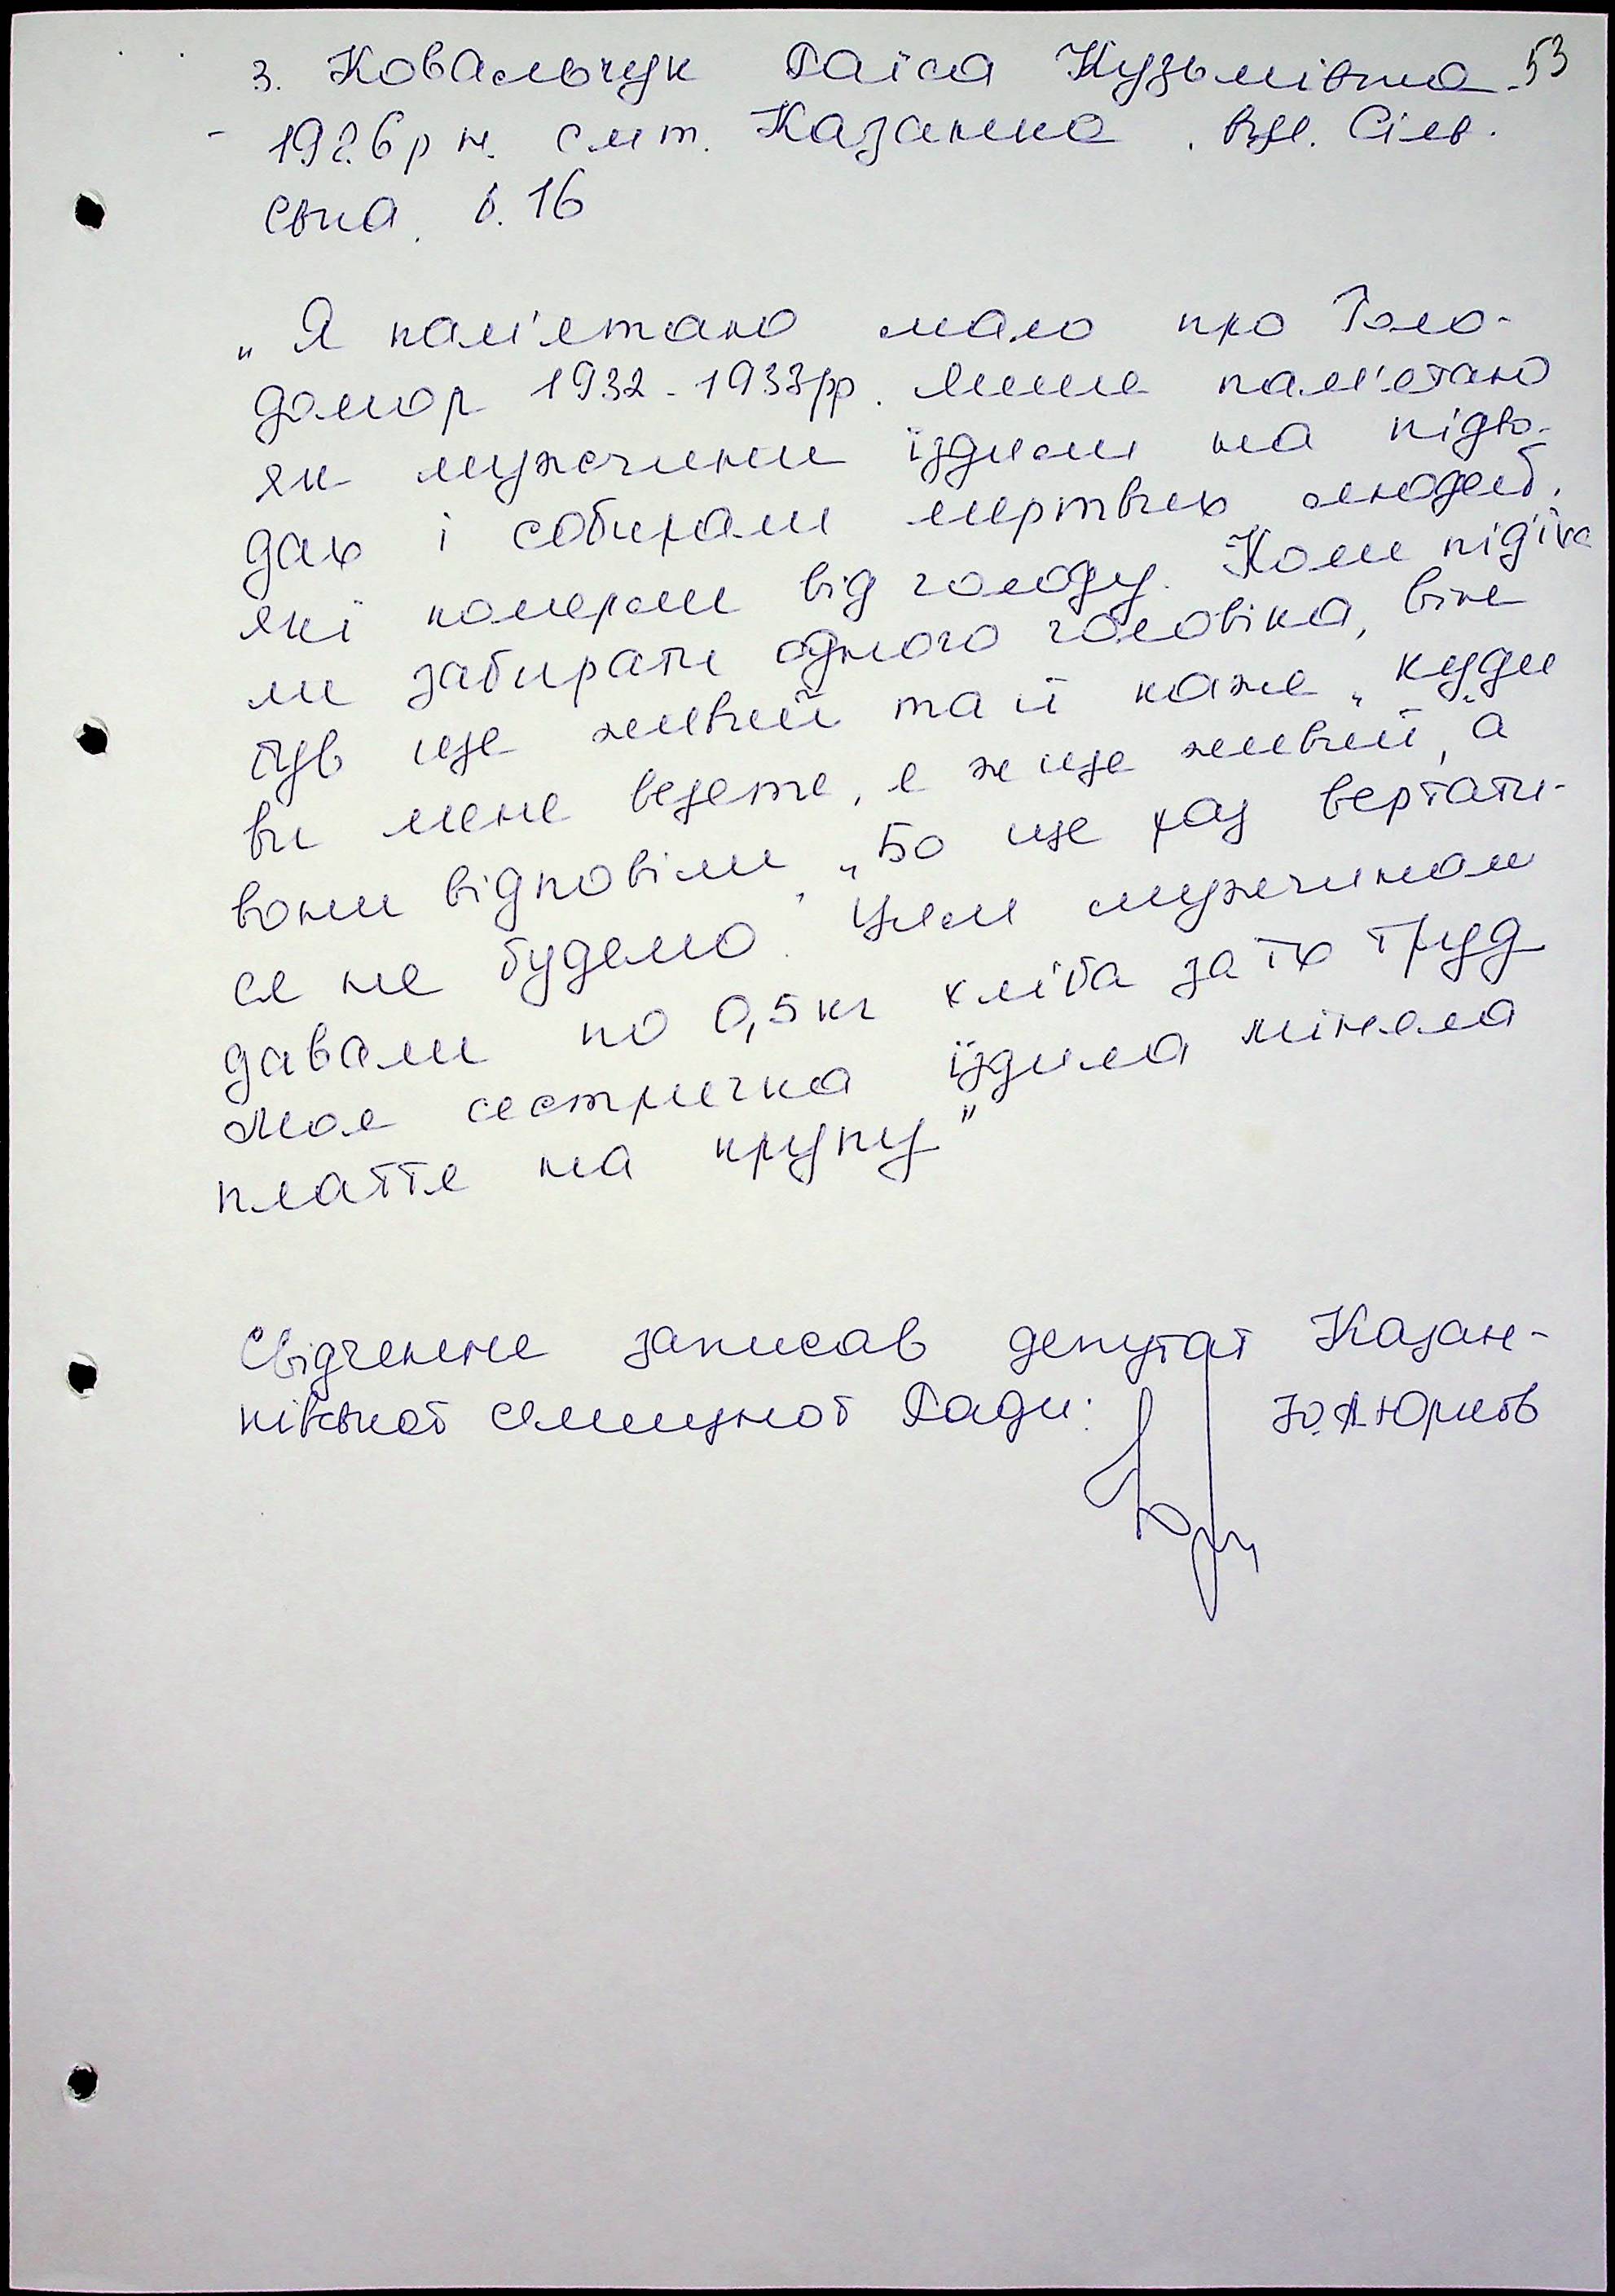 53
3. Ковальчук Раїса Кузьмівна
1926 р н. смт. Казанка. вул. Сіль-
ська. б. 16
„Я пам'ятаю мало про Голо-
домор 1932-1933рр. Лише пам'ятаю
як мужчини їздили на підво-
дах і собирали мертвих людей,
які померли від голоду. Коли підїха
ли забирати одного чоловіка, він
був ще живий та й каже „куди
ви мене везете, я ж ще живий", а
вони відповіли „Бо ще раз вертати-
ся не будемо". Цим мужчинам
давали по 0,5 кг хліба за їх труд
Моя сестричка їздила міняла
плаття на крупу"
Свідчення записав депутат Казан-
ківської селищної Ради: